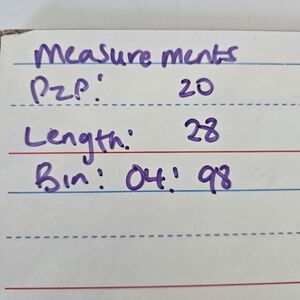 measurements
P2P: 20
Length: 28
Bin: 04: 98